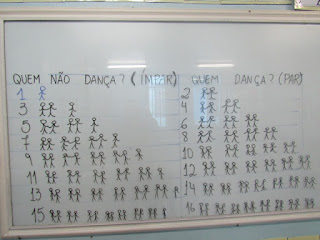 QUEM NÃO DANÇA? (ÍMPAR)
1
3
5
7
9
11
13
15
QUEM DANÇA? (PAR)
2
4
6
8
10
12
14
16